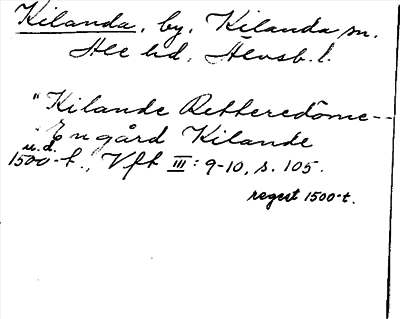 Kilanda, by, Kilanda sn.
Ale hd, Älvsb. l.
"Kilande Retheredöme--
- Engård Kilande
u.d.
1500-t., Vft III: 9-10, s. 105.
regest 1500-t.